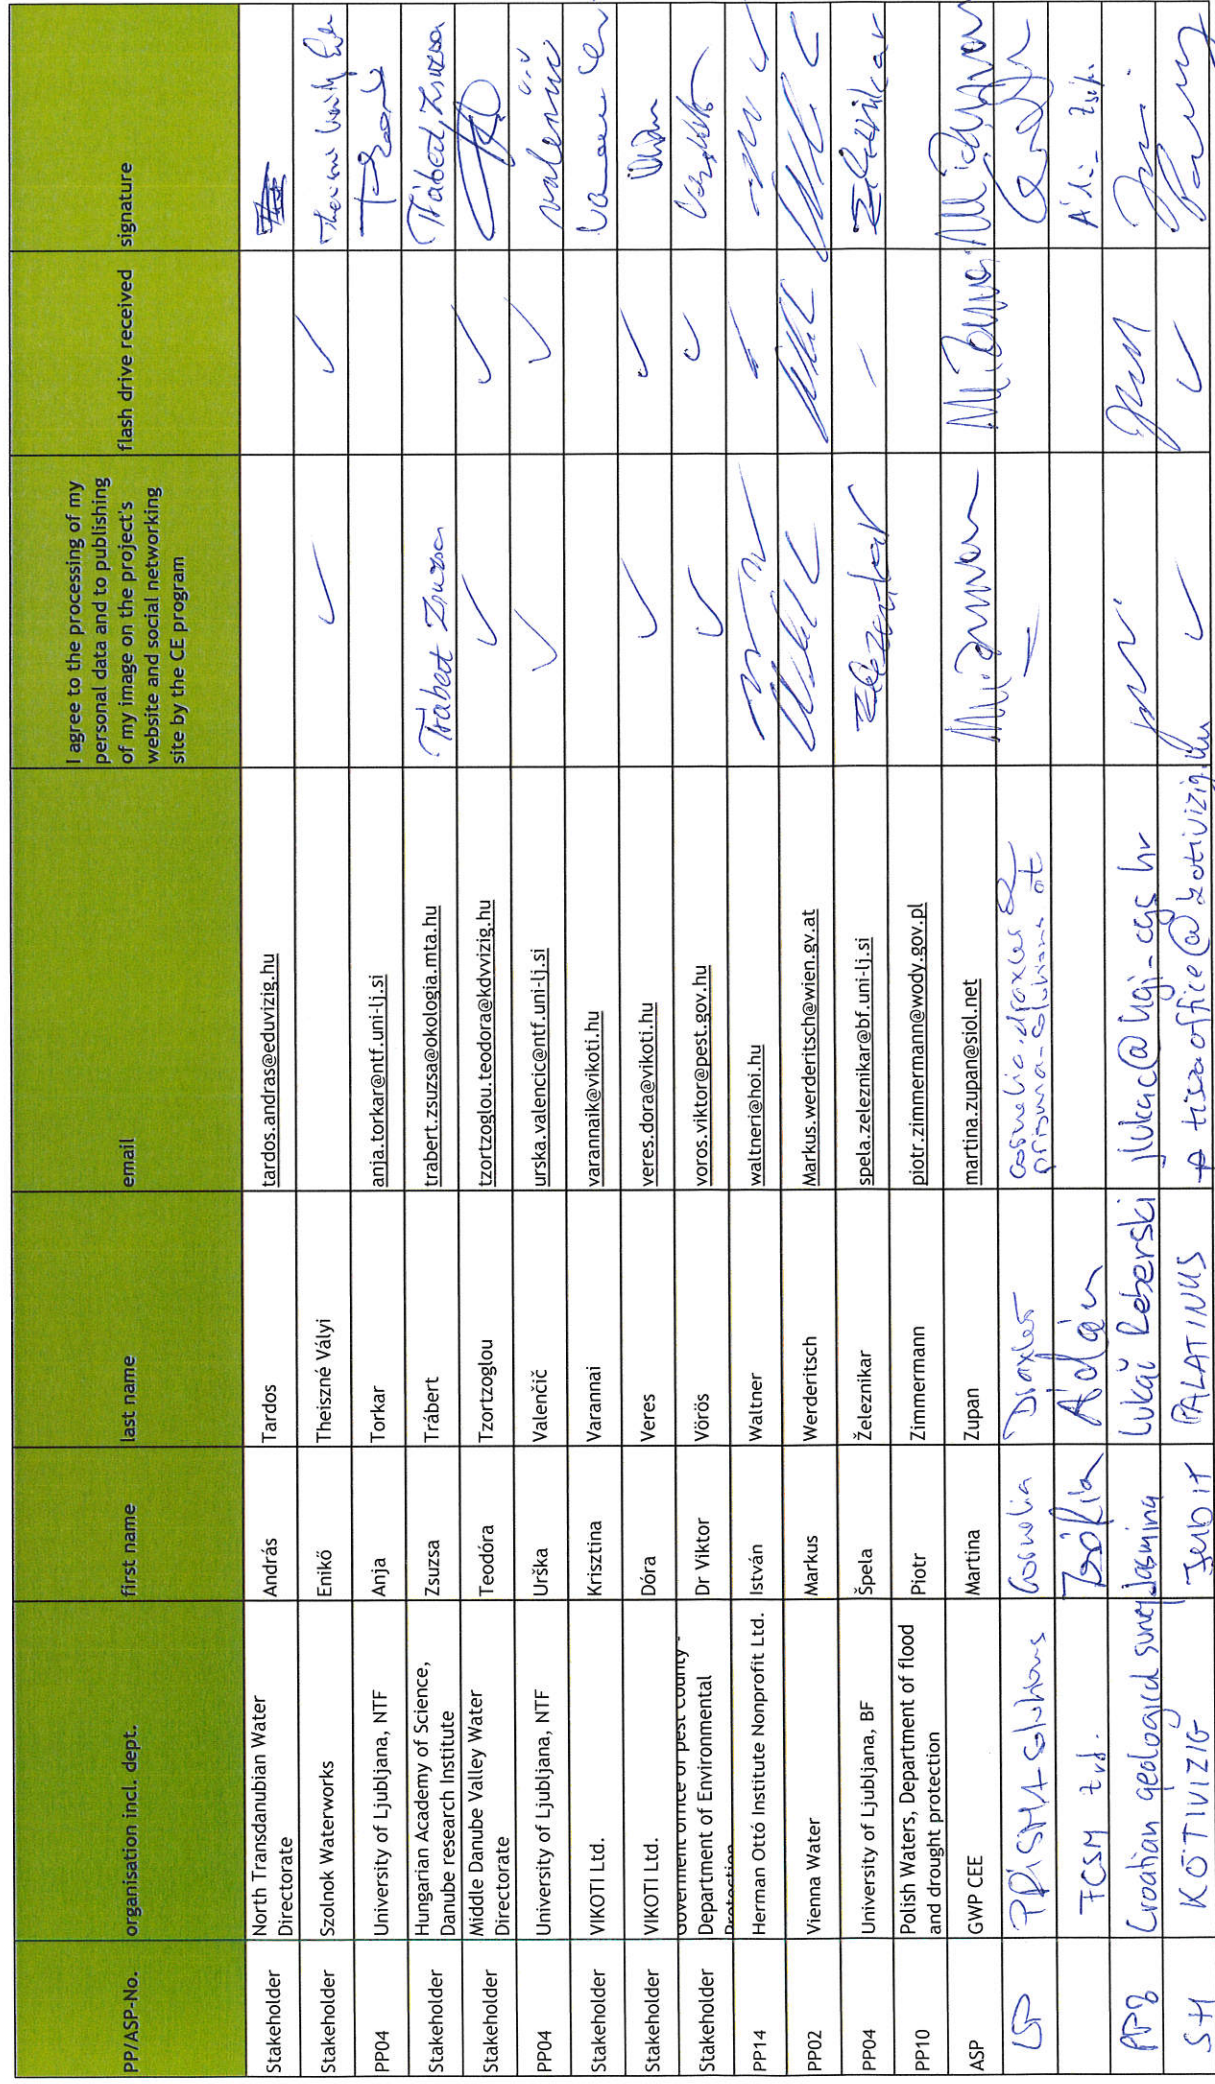 PP/ASP-No. organisation incl. dept. first name last name email I agree to the processing of my personal data and to publishing of my image on the project's website and social networking site by the CE program flash drive received signature
Stakeholder North Transdanubian Water Directorate András Tardos tardos.andras@eduvizig.hu
Stakeholder Szolnok Waterworks Enikő Theiszné Vályi
PP04 University of Ljubljana, NTF Anja Torkar anja.torkar@ntf.uni-lj.si
Stakeholder Hungarian Academy of Science, Danube research Institute Zsuzsa Trábert trabert.zsuzsa@okologia.mta.hu Trábert Zsuzsa Trábert Zsuzsa
Stakeholder Middle Danube Valley Water Directorate Teodóra Tzortzoglou tzortzoglou.teodora@kdvvizig.hu
PP04 University of Ljubljana, NTF Urška Valenčič urska.valencic@ntf.uni-lj.si Valenčič
Stakeholder VIKOTI Ltd. Krisztina Varannai varannaik@vikoti.hu
Stakeholder VIKOTI Ltd. Dóra Veres veres.dora@vikoti.hu
Stakeholder Government office of pest county - Department of Environmental Protection Dr Viktor Vörös voros.viktor@pest.gov.hu
PP14 Herman Ottó Institute Nonprofit Ltd. István Waltner waltneri@hoi.hu
PP02 Vienna Water Markus Werderitsch Markus.werderitsch@wien.gv.at
PP04 University of Ljubljana, BF Špela Železnikar spela.zeleznikar@bf.uni-lj.si Železnikar Železnikar
PP10 Polish Waters, Department of flood and drought protection Piotr Zimmermann piotr.zimmermann@wody.gov.pl
ASP GWP CEE Martina Zupan martina.zupan@siol.net
LP PRISMA solutions Cornelia Draxler cornelia.draxler@prisma-solutions.at
FCSM Zrt. Zsófia Ádám
PP8 Croatian geological survey Jasmina Lukač Reberski jlukac@hgi-cgs.hr
SH KÖTIVIZIG JUDIT PALATINUS tiszaoffice@kotivizig.hu